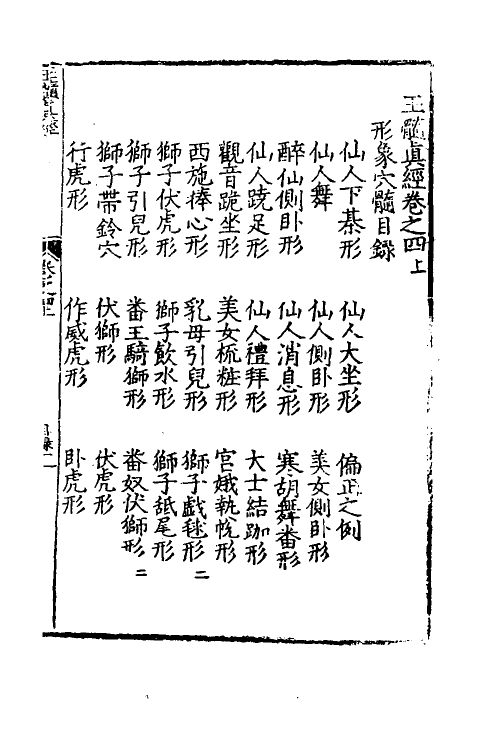 玉髓真經卷之四上
形象穴髓目録
仙人下棊形 仙人大坐形 偏正之例
仙人舞 仙人側卧形 美女側卧形
醉仙側卧形 仙人消息形 寒胡舞番形
仙人跣足形 仙人禮拜形 大士結跏形
觀音跪坐形 美女梳粧形 宮娥執帨形
西施捧心形 乳母引兒形 獅子戲毬形二
獅子伏虎形 獅子飲水形 獅子舐尾形
獅子引兒形 番王騎獅形 番奴伏獅形二
獅子帶鈴穴 伏獅形 伏虎形
行虎形 作威虎形 卧虎形